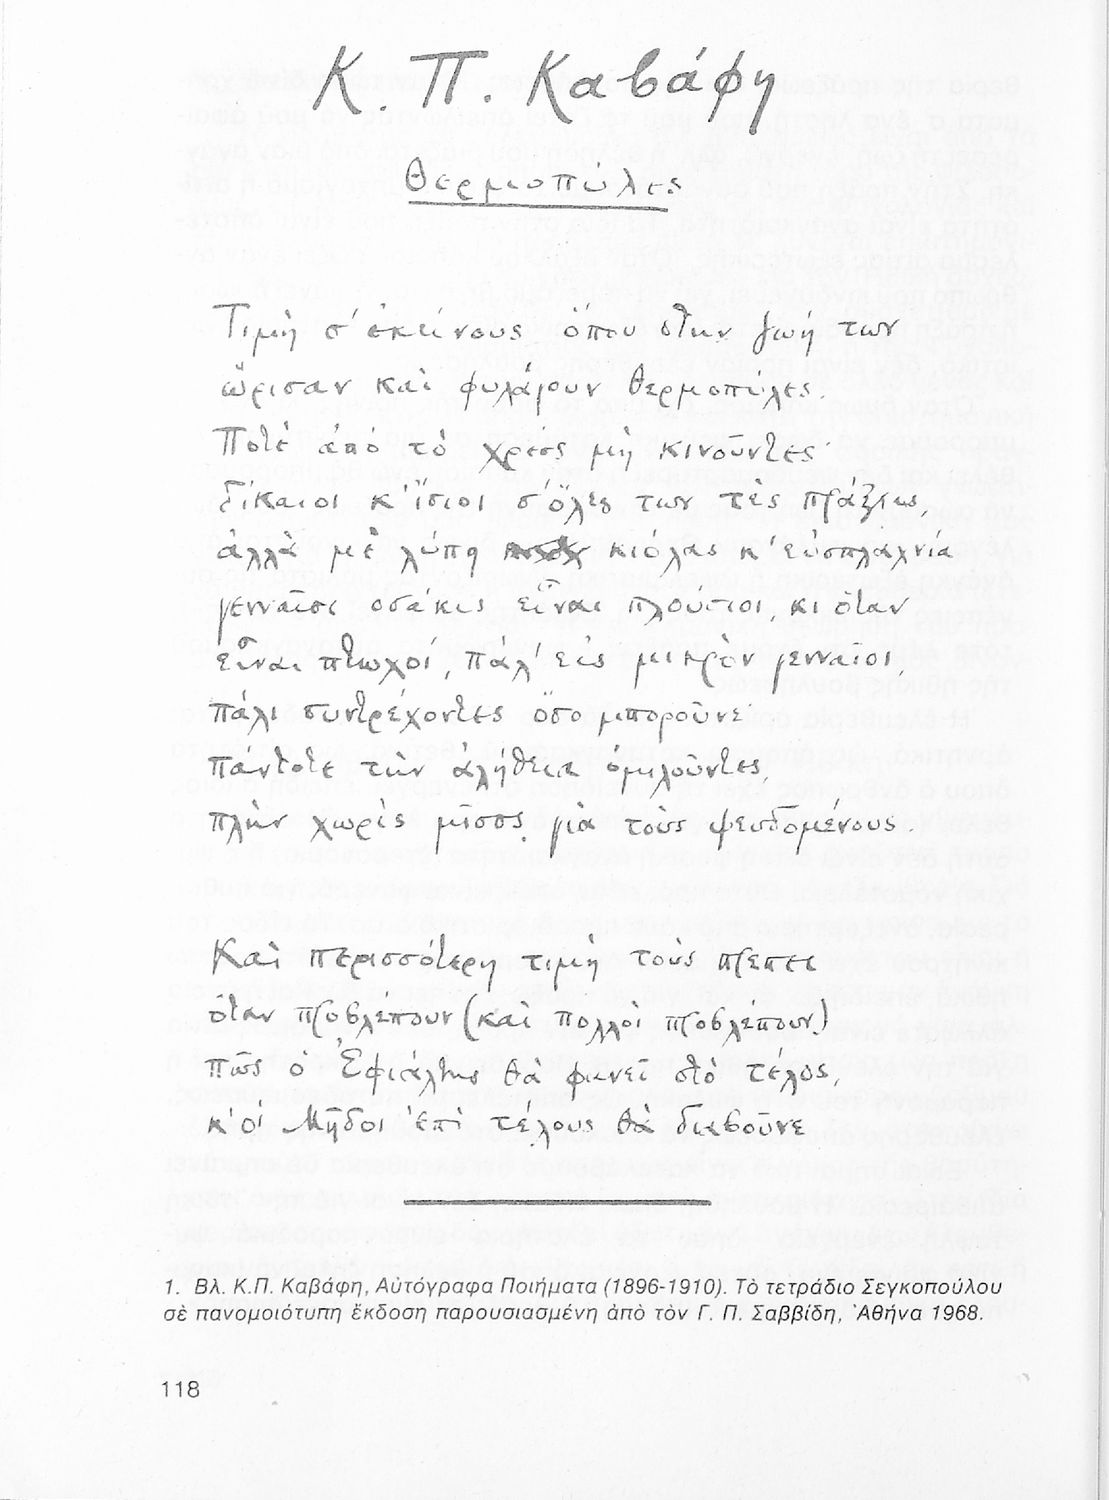 Κ. Π. Καβάφη
Θερμοπύλες
Τιμὴ σ' ἐκείνους ὅπου στὴν ζωή των
ὥρισαν καὶ φυλάγουν Θερμοπύλες.
Ποτὲ ἀπὸ τὸ χρέος μὴ κινοῦντες·
δίκαιοι κ' ἴσιοι σ' ὅλες των τὲς πράξεις,
ἀλλὰ μὲ λύπη κιόλας κ' εὐσπλαχνία·
γενναῖοι οσάκις εἶναι πλούσιοι, κι ὅταν
εἶναι πτωχοί, πάλ' εἰς μικρὸν γενναῖοι,
πάλι συντρέχοντες ὅσο μποροῦνε·
πάντοτε τὴν ἀλήθεια ὁμιλοῦντες,
πλὴν χωρὶς μῖσος γιὰ τοὺς ψευδομένους.
Καὶ περισσότερη τιμὴ τοὺς πρέπει
ὅταν προβλέπουν (καὶ πολλοὶ προβλέπουν)
πῶς ὁ Ἐφιάλτης θὰ φανεῖ στὸ τέλος,
κ' οἱ Μῆδοι ἐπὶ τέλους θὰ διαβοῦνε
1. Βλ. Κ.Π. Καβάφη, Αὐτόγραφα Ποιήματα (1896-1910). Τὸ τετράδιο Σεγκοπούλου
σὲ πανομοιότυπη ἔκδοση παρουσιασμένη ἀπὸ τὸν Γ. Π. Σαββίδη, Ἀθήνα 1968.
118